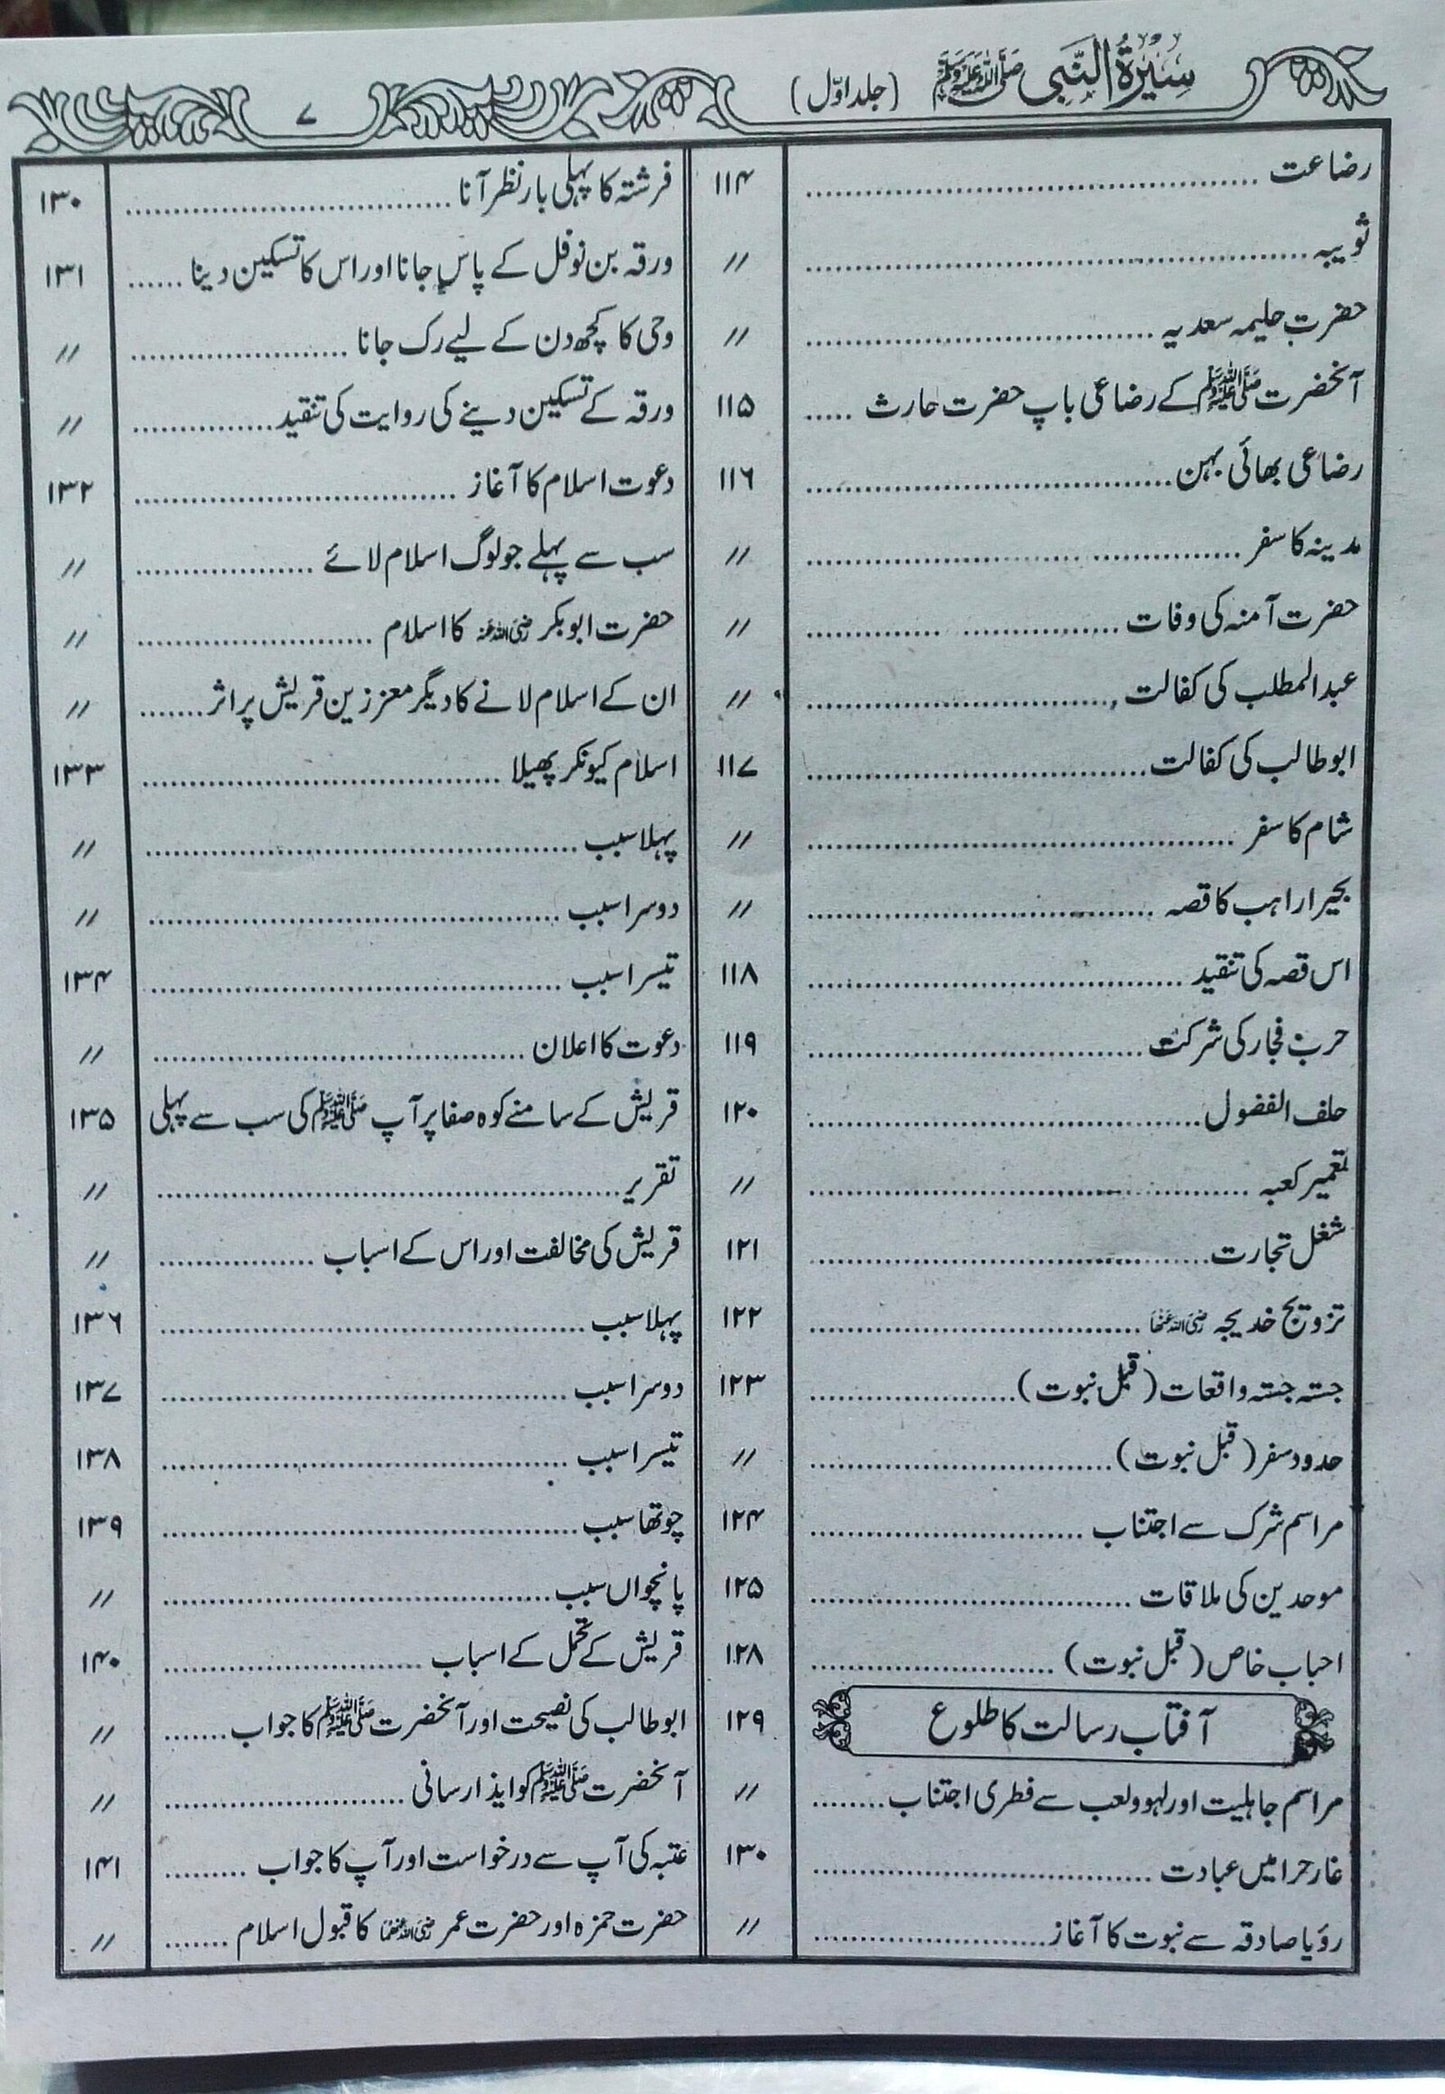 سِیْرَۃُ النَّبِی ﷺ (جلد اوّل) ۷
رضاعت ........ ۱۱۴
ثویبہ ........ //
حضرت حلیمہ سعدیہ ........ //
آنحضرت ﷺ کے رضاعی باپ حضرت حارث ..... ۱۱۵
رضاعی بھائی بہن ........ ۱۱۶
مدینہ کا سفر ........ //
حضرت آمنہ کی وفات ........ //
عبدالمطلب کی کفالت ........ //
ابوطالب کی کفالت ........ ۱۱۷
شام کا سفر ........ //
بحیرا راہب کا قصہ ........ //
اس قصہ کی تنقید ........ ۱۱۸
حرب فجار کی شرکت ........ ۱۱۹
حلف الفضول ........ ۱۲۰
تعمیر کعبہ ........ //
شغل تجارت ........ ۱۲۱
تزویج خدیجہ رضی اللہ عنہا ........ ۱۲۲
جستہ جستہ واقعات (قبل نبوت) ........ ۱۲۳
حدود سفر (قبل نبوت) ........ //
مراسم شرک سے اجتناب ........ ۱۲۴
موحدین کی ملاقات ........ ۱۲۵
احباب خاص (قبل نبوت) ........ ۱۲۸
آفتاب رسالت کا طلوع ۱۲۹
مراسم جاہلیت اور لہو ولعب سے فطری اجتناب ........ //
غار حرا میں عبادت ........ ۱۳۰
رؤیا صادقہ سے نبوت کا آغاز ........ //
فرشتہ کا پہلی بار نظر آنا ........ ۱۳۰
ورقہ بن نوفل کے پاس جانا اور اس کا تسکین دینا ...... ۱۳۱
وحی کا کچھ دن کے لیے رک جانا ........ //
ورقہ کے تسکین دینے کی روایت کی تنقید ........ //
دعوت اسلام کا آغاز ........ ۱۳۲
سب سے پہلے جو لوگ اسلام لائے ........ //
حضرت ابوبکر رضی اللہ عنہ کا اسلام ........ //
ان کے اسلام لانے کا دیگر معززین قریش پر اثر ....... //
اسلام کیونکر پھیلا ........ ۱۳۳
پہلا سبب ........ //
دوسرا سبب ........ //
تیسرا سبب ........ ۱۳۴
دعوت کا اعلان ........ //
قریش کے سامنے کوہ صفا پر آپ ﷺ کی سب سے پہلی ۱۳۵
تقریر ........ //
قریش کی مخالفت اور اس کے اسباب ........ //
پہلا سبب ........ ۱۳۶
دوسرا سبب ........ ۱۳۷
تیسرا سبب ........ ۱۳۸
چوتھا سبب ........ ۱۳۹
پانچواں سبب ........ //
قریش کے تحمل کے اسباب ........ ۱۴۰
ابوطالب کی نصیحت اور آنحضرت ﷺ کا جواب ....... //
آنحضرت ﷺ کو ایذا رسانی ........ //
عتبہ کی آپ سے درخواست اور آپ کا جواب ........ ۱۴۱
حضرت حمزہ اور حضرت عمر رضی اللہ عنہما کا قبول اسلام ....... //